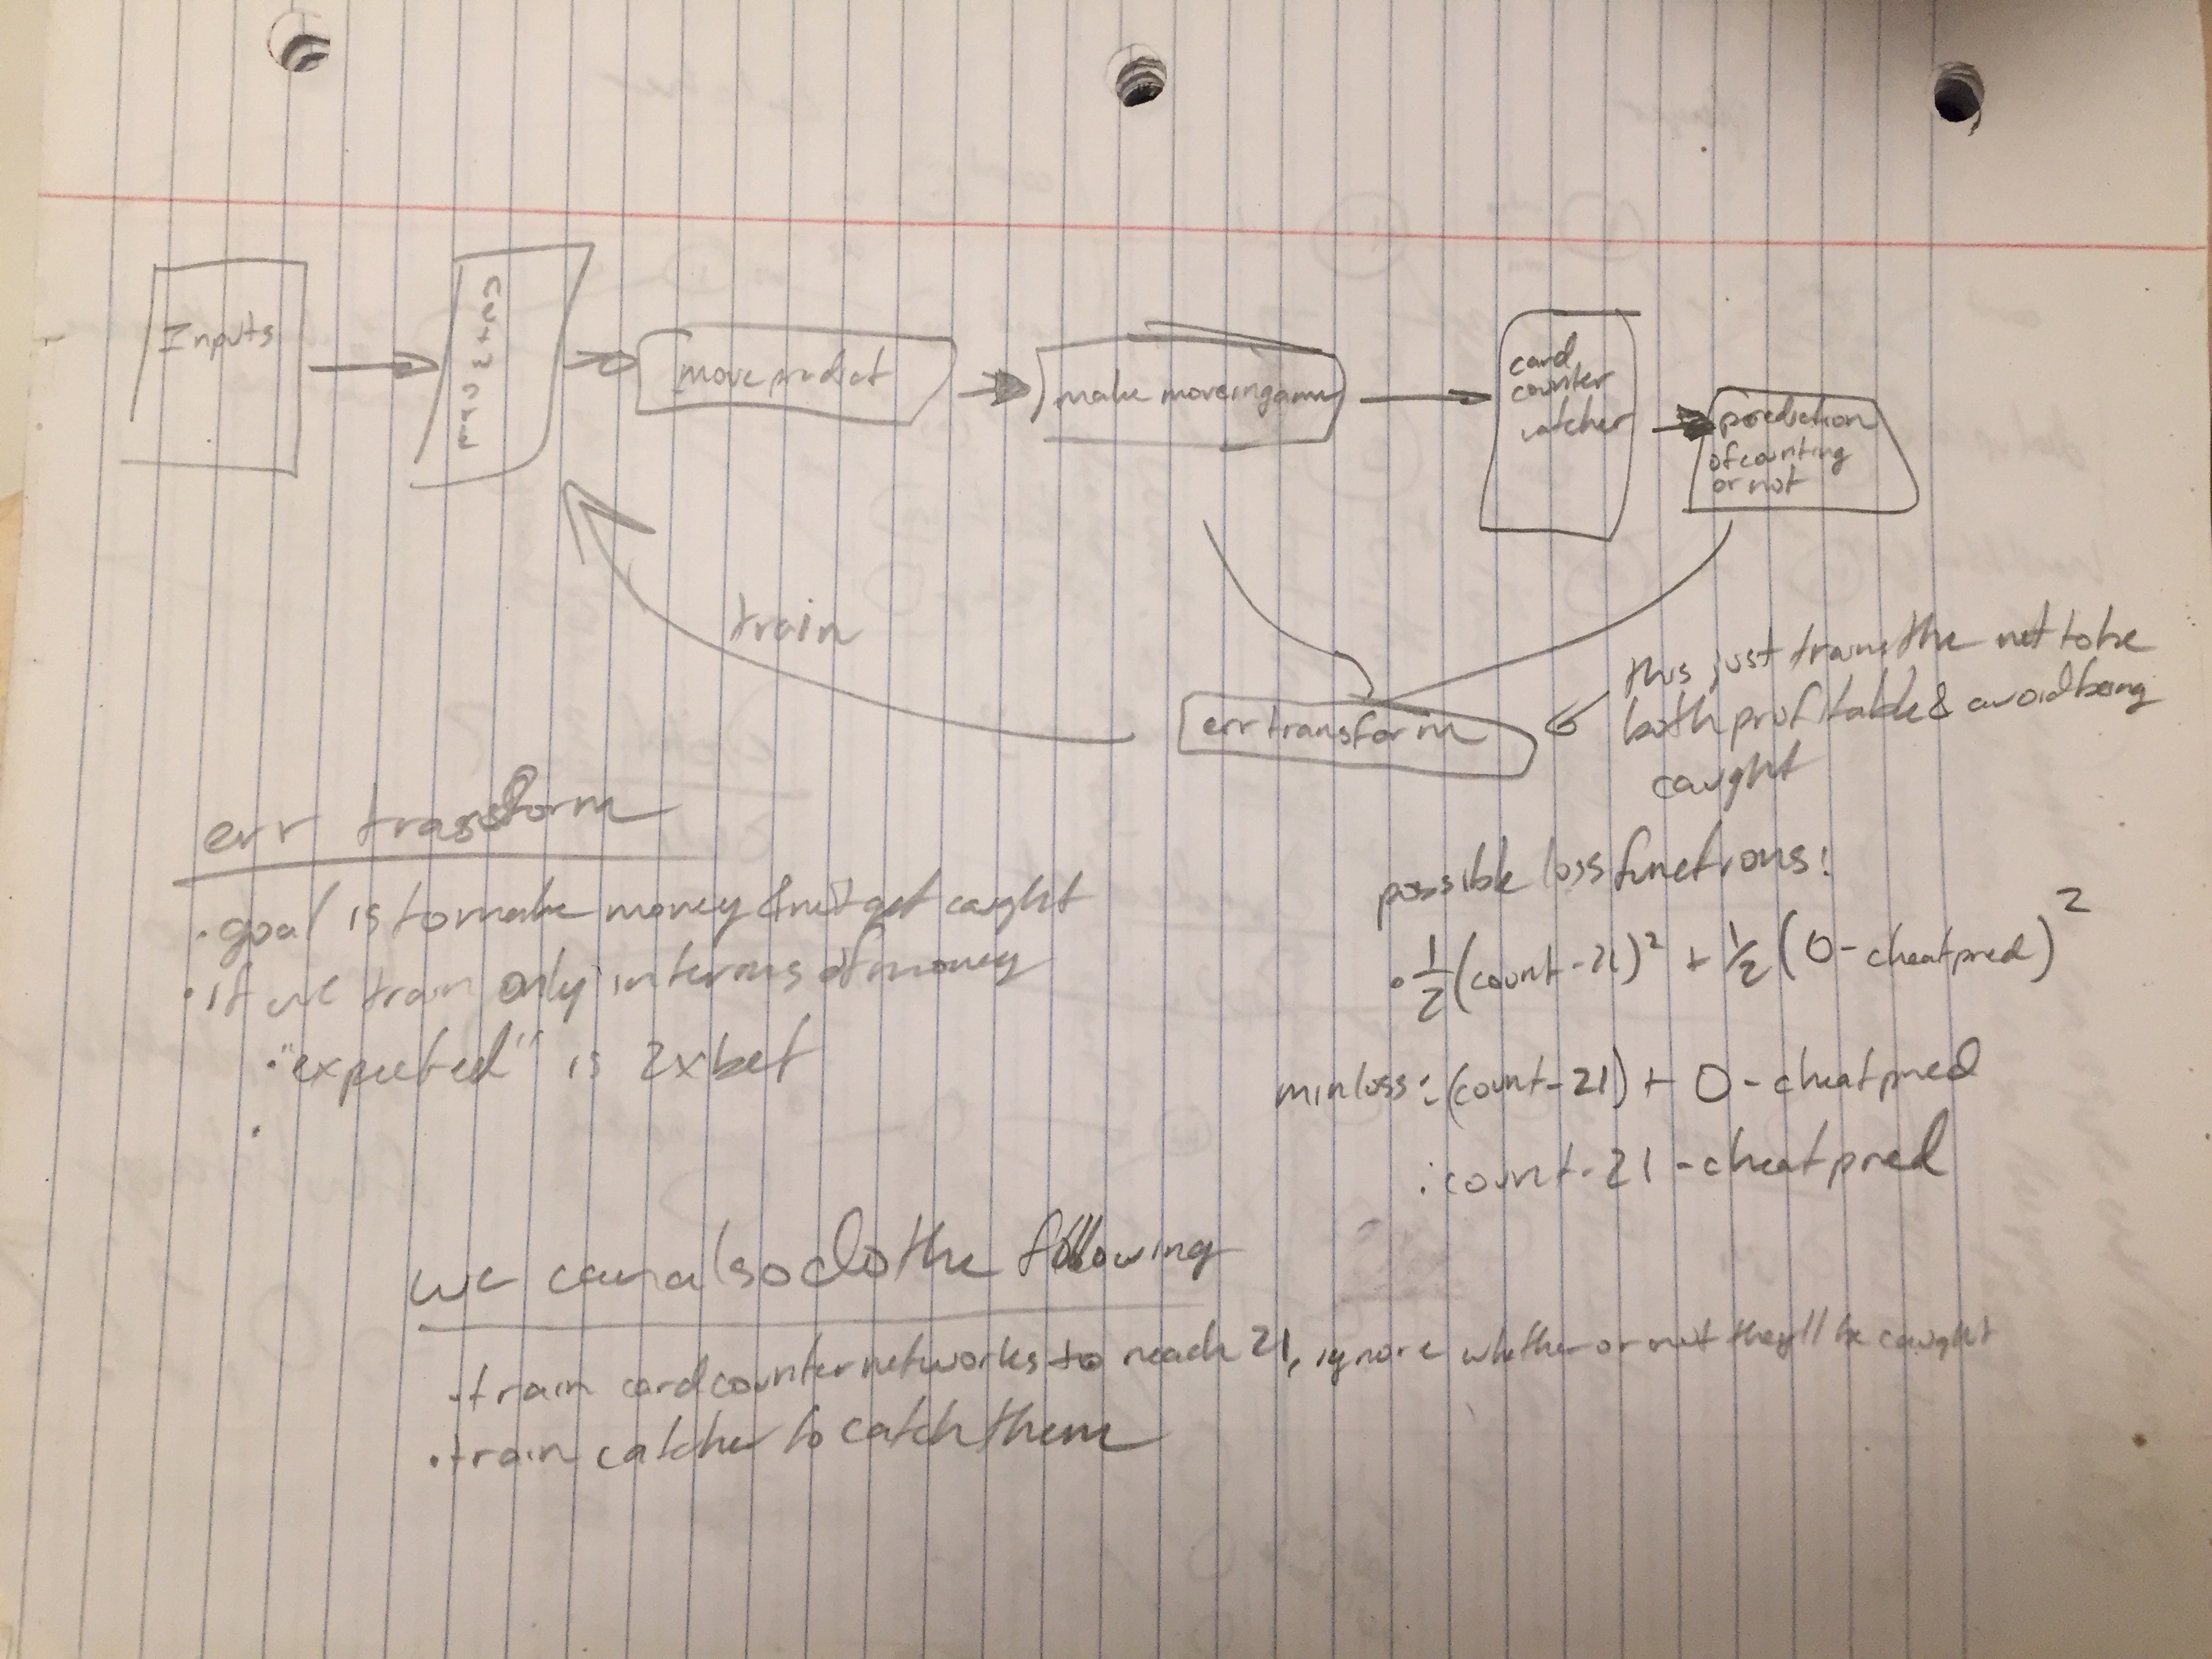 Inputs
move predict
make move in game
card
counter
catcher
prediction
of counting
or not
train
err transform
this just trains the net to be
both profitable & avoid being
caught
err transform
· goal is to make money & not get caught
· if we train only in terms of money
· "expected" is 2xbet
possible loss functions:
· 1/2 (count - 21)² + 1/2 (0 - cheatpred)²
min loss: (count - 21) + 0 - cheatpred
: count - 21 - cheatpred
we can also do the following
· train card counter networks to reach 21, ignore whether or not they'll be caught
· train catcher to catch them